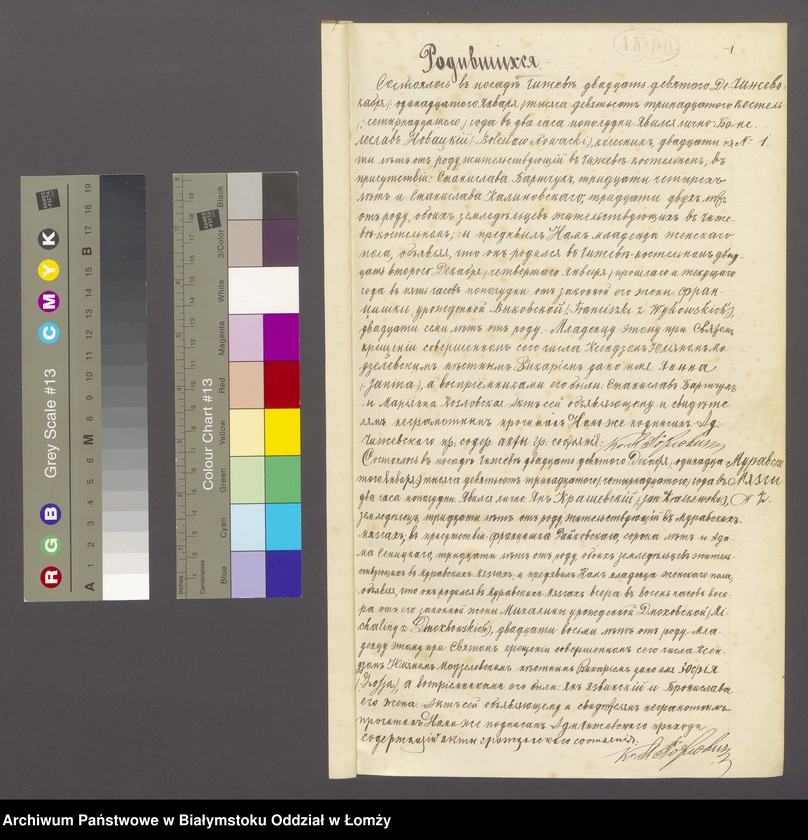 Родившихся.
Состоялось въ посадѣ Чижевѣ двадцать девятого Де-
Чижево-
кабря / одинадцатого Января / тысяча девятьсотъ тринадцатого
костель-
/ четырнадцатого / года въ два часа пополудни. Явился лично: Бо-
не.
леславъ Новацкій / Bolesław Nowacki /, колесникъ, двадцати
№ 1
ти лѣтъ отъ роду жительствующій въ Чижевѣ костельномъ, въ
присутствіи: Станислава Бартчукъ, тридцати четырехъ
лѣтъ и Станислава Калиновскаго, тридцати двухъ лѣтъ
отъ роду, обоихъ земледѣльцевъ жительствующихъ въ Чиже-
вѣ-костельномъ; и предъявилъ Намъ младенца женскаго
пола, объявляя, что онъ родился въ Чижевѣ-костельномъ двад-
цать второго Декабря / четвертого Января / прошлаго и текущаго
года въ пять часовъ пополудни отъ законной его жены Фран-
цишки урожденной Выковской / Franciszki z Wykowskich /,
двадцати семи лѣтъ отъ роду. Младенцу этому при Святомъ
крещеніи совершенномъ сего числа Ксендзомъ Мо-
дзелевскимъ мѣстнымъ Викаріемъ дано имя Анна
/ Janina /, а воспріемниками его были: Станиславъ Бартчукъ
и Маріянна Козловская. Актъ сей объявляющему и свидѣте-
лямъ неграмотнымъ прочитанъ Нами же подписанъ. Ад.
Чижевскаго пр. содер. акты гр. состоянія:
Состоялось въ посадѣ Чижевѣ двадцать девятого Декабря / одинадца
Муравское
того Января / тысяча девятьсотъ тринадцатого / четырнадцатого / года въ
Мязги
два часа пополудни. Явился лично Янъ Крашевскій / Jan Kraszewski /,
№ 2.
земледѣлецъ, тридцати лѣтъ отъ роду, жительствующій въ Муравскихъ
Мязгахъ, въ присутствіи: Францишка Файковскаго, сорока лѣтъ и Ада-
ма Сенницкаго, тридцати лѣтъ отъ роду, обоихъ земледѣльцевъ житель-
ствующихъ въ Муравскихъ Мязгахъ; и предъявилъ Намъ младенца женскаго пола,
объявляя, что онъ родился въ Муравскихъ Мязгахъ вчера въ восемь часовъ вече-
ра отъ его законной жены Михалины урожденной Дмоховской / Mi-
chaliny z Dmochowskich /, двадцати восьми лѣтъ отъ роду. Мла-
денцу этому при Святомъ крещеніи совершенномъ сего числа Ксен-
дзомъ Модзелевскимъ мѣстнымъ Викаріемъ дано имя Зофія
/ Zofja /, а воспріемниками его были: Янъ Язвинскій и Бронислава
его жена. Актъ сей объявляющему и свидѣтелямъ неграмотнымъ
прочитанъ Нами же подписанъ. Адм. Чижевскаго прихода
содержащій акты гражданскаго состоянія:
Grey Scale #13
R G B C M Y K
A 1 2 3 4 5 6 M 8 9 10 11 12 13 14 15 B 17 18 19
Colour Chart #13
Blue Cyan Green Yellow Red Magenta White 3/Color Black
Inches
Centimetres
Archiwum Państwowe w Białymstoku Oddział w Łomży